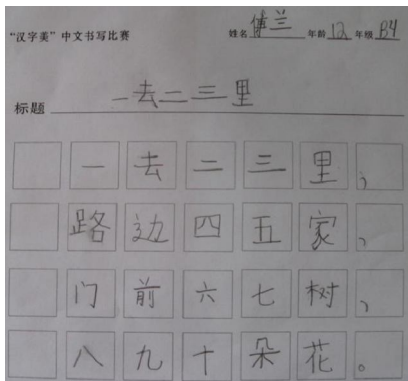 “汉字美”中文书写比赛 姓名 傅兰 年龄 12 年级 B4
标题 一去二三里
一去二三里,
路边四五家,
门前六七树,
八九十朵花。